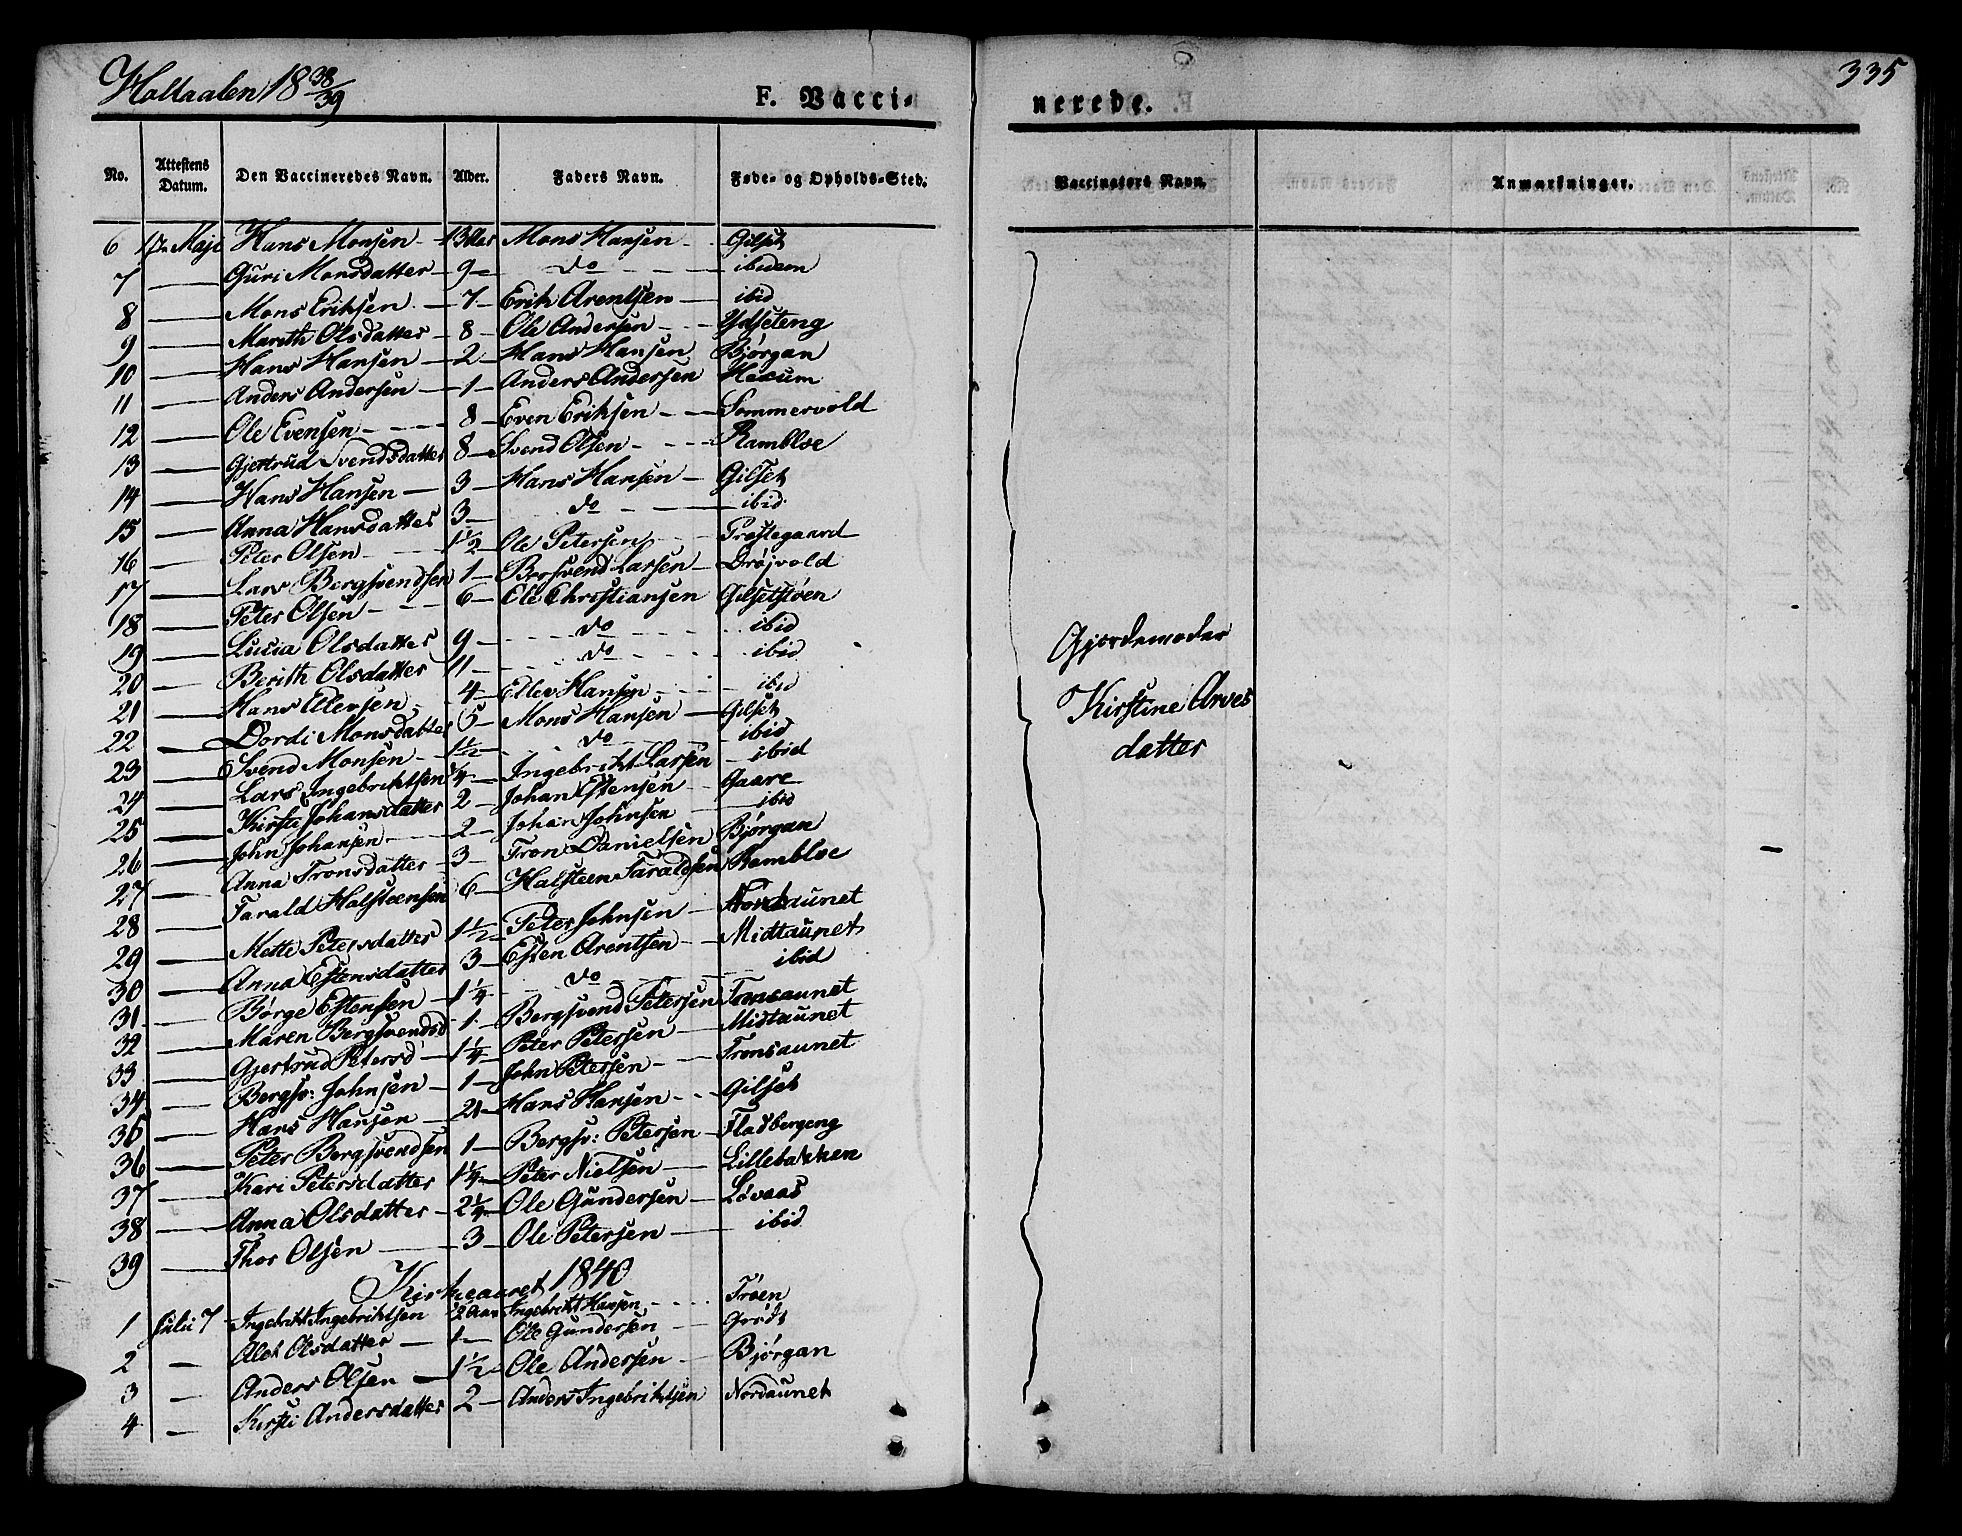 Holtaalen 18 38/39
335
F. Vacci-
nerede.
No. Attestens Datum. Den Vaccineredes Navn. Alder. Faders Navn. Føde- og Opholds-Sted. Vaccinators Navn. Anmærkninger.
6 17de Maji Hans Monsen - 13 Aar Mons Hansen - Gilset
7 — Guri Monsdatter - 9 - do - ibidem
8 — Mons Eriksen - 7 - Erik Arentsen - ibid
9 — Marith Olsdatter - 8 - Ole Andersen - Ydseteng
10 — Hans Hansen - 2 - Hans Hansen Bjørgan
11 — Anders Andersen - 1 - Anders Andersen Hexum
12 — Ole Evensen - 8 - Even Eriksen - Sommervold
13 — Gjertrud Svendsdatter 8 - Svend Olsen - Rambloe
14 — Hans Hansen - 3 - Hans Hansen - Gilset
15 — Anna Hansdatter 3 - do - ibid:
16 — Peter Olsen - 1 1/2 Ole Petersen - Præstegaard
17 — Lars Bergsvendsen 1 - Bersvend Larsen - Drøjvold
18 — Peter Olsen - 6 - Ole Christiansen Gilsetsøen
19 — Lucia Olsdatter 9 - do - ibid
20 — Berith Olsdatter 11 - do - ibid
21 — Hans Ellevsen - 4 - Ellev Hansen - ibid
22 — Dordi Monsdatter 5 - Mons Hansen - Gilset
23 — Svend Monsen - 1 1/2 - do - ibid
24 — Lars Ingebriktsen 1/4 - Ingebrikt Larsen - ibid
25 — Kirsti Johansdatter 2 - Johan Estensen - Gaare
26 — John Johansen - 2 - Johan Johnsen - ibid
27 — Anna Tronsdatter - 3 - Tron Danielsen Bjørgan
28 — Tarald Halsteensen 6 - Halsteen Taraldsen Rambloe
29 — Mette Petersdatter 1 1/2 - Peter Johnsen - Nordaunet
30 — Anna Estensdatter 3 - Esten Arentsen - Midtaunet
31 — Børge Estensen - 1 1/4 - do - ibid
32 — Maren Bergsvendsd 1 - Bergsvend Petersen Tronsaunet
33 — Gjertrud Petersd - 1 1/4 - Peter Petersen - Midtaunet
34 — Bergsv: Johnsen - 1 - John Petersen - Tronsaunet
35 — Hans Hansen - 21 - Hans Hansen - Gilset
36 — Peter Bergsvendsen 1 - Bergsv: Petersen - Fladbergeng
37 — Kari Petersdatter 1 1/4 - Peter Nielsen - Lillebakken
38 — Anna Olsdatter - 2 1/4 - Ole Gundersen - Løvaas
39 — Thor Olsen - 3 - Ole Petersen - ibid
Gjordemoder
Kirstine Arves
datter
Kirkeaaret 1840
1 Julii 7 Ingebrikt Ingebriktsen 2 Aar Ingebrikt Hansen - Trøen
2 — Alet Olsdatter - 1 - Ole Gundersen - Grødt
3 — Anders Olsen - 1 1/2 - Ole Andersen - Bjørgan
4 — Kirsti Andersdatter 2 - Anders Ingebriktsen Nordaunet